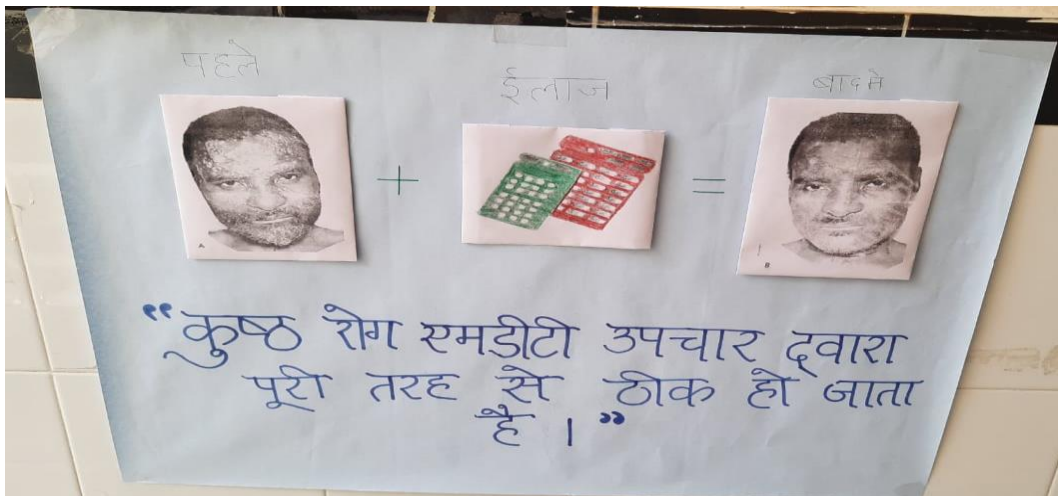 पहले
ईलाज
बादमे
A
B
“कुष्ठ रोग एमडीटी उपचार द्वारा
पूरी तरह से ठीक हो जाता
है ।”